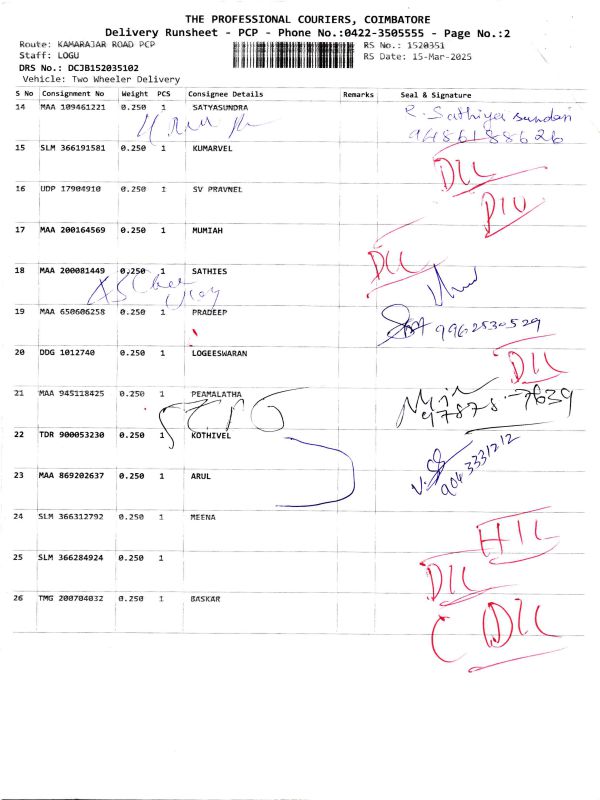 THE PROFESSIONAL COURIERS, COIMBATORE
Delivery Runsheet - PCP - Phone No.:0422-3505555 - Page No.:2
Route: KAMARAJAR ROAD PCP RS No.: 1520351
Staff: LOGU RS Date: 15-Mar-2025
DRS No.: DCJB152035102
Vehicle: Two Wheeler Delivery
S No Consignment No Weight PCS Consignee Details Remarks Seal & Signature
14 MAA 109461221 0.250 1 SATYASUNDRA R. Sathiya sundari
9486188626
15 SLM 366191581 0.250 1 KUMARVEL
DIL
16 UDP 17904910 0.250 1 SV PRAVNEL
17 MAA 200164569 0.250 1 MUMIAH
DIL
18 MAA 200081449 0.250 1 SATHIES
19 MAA 650606258 0.250 1 PRADEEP
9962530529
20 DDG 1012740 0.250 1 LOGEESWARAN
DIL
21 MAA 945118425 0.250 1 PEAMALATHA
97878-7639
22 TDR 900053230 0.250 1 KOTHIVEL
9043331212
23 MAA 869202637 0.250 1 ARUL
24 SLM 366312792 0.250 1 MEENA
HIL
25 SLM 366284924 0.250 1
DIL
26 TMG 200704032 0.250 1 BASKAR
DIL